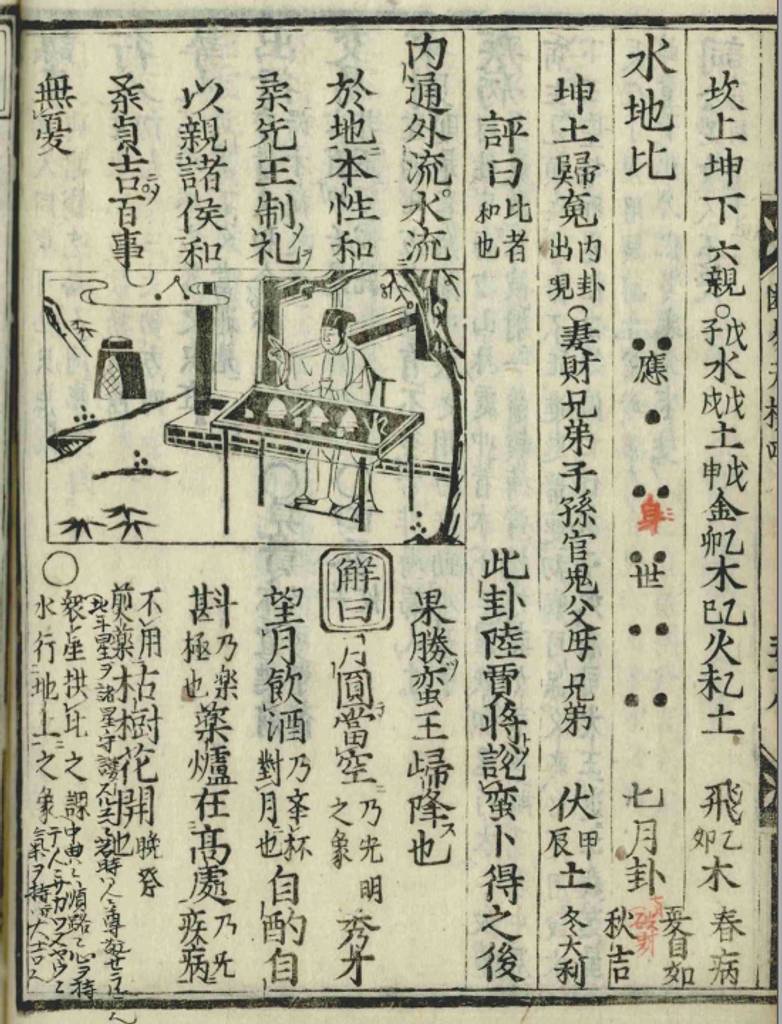 坎上坤下六親○戊子水戊戌土戊申金乙卯木乙巳火乙未土 飛乙卯木 春病
水地比 應 身 世 七月卦 夏自如 秋吉
坤土歸䰟内卦出現○妻財兄弟子孫官鬼父母兄弟 伏甲辰土 冬大利
評曰比者和也 此卦陸賈將說蛮卜得之後
内通外流水流
於地本性和
柔先王制礼
以親諸侯和
柔貞吉百事
無憂
果勝蛮王歸降也
解曰 月圓當空乃光明之象 秀才
望月飲酒乃举杯對月也自酌自
斟乃樂極也藥爐在高處乃凡疾病
不用煎藥枯樹花開晚發也
○衆星拱北之課
水行地上之象